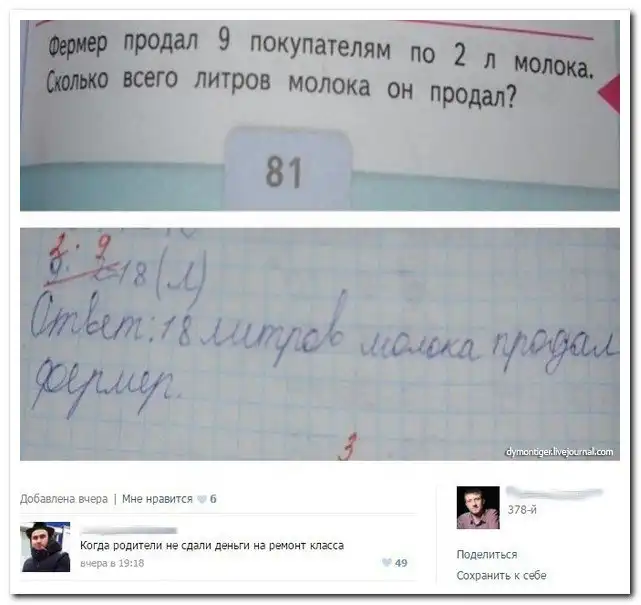 Фермер продал 9 покупателям по 2 л молока.
Сколько всего литров молока он продал?
81
2 · 9
9 · 2=18(л)
Ответ: 18 литров молока продал
фермер.
3
dymontiger.livejournal.com
Добавлена вчера | Мне нравится 6
Когда родители не сдали деньги на ремонт класса
вчера в 19:18
49
378-й
Поделиться
Сохранить к себе